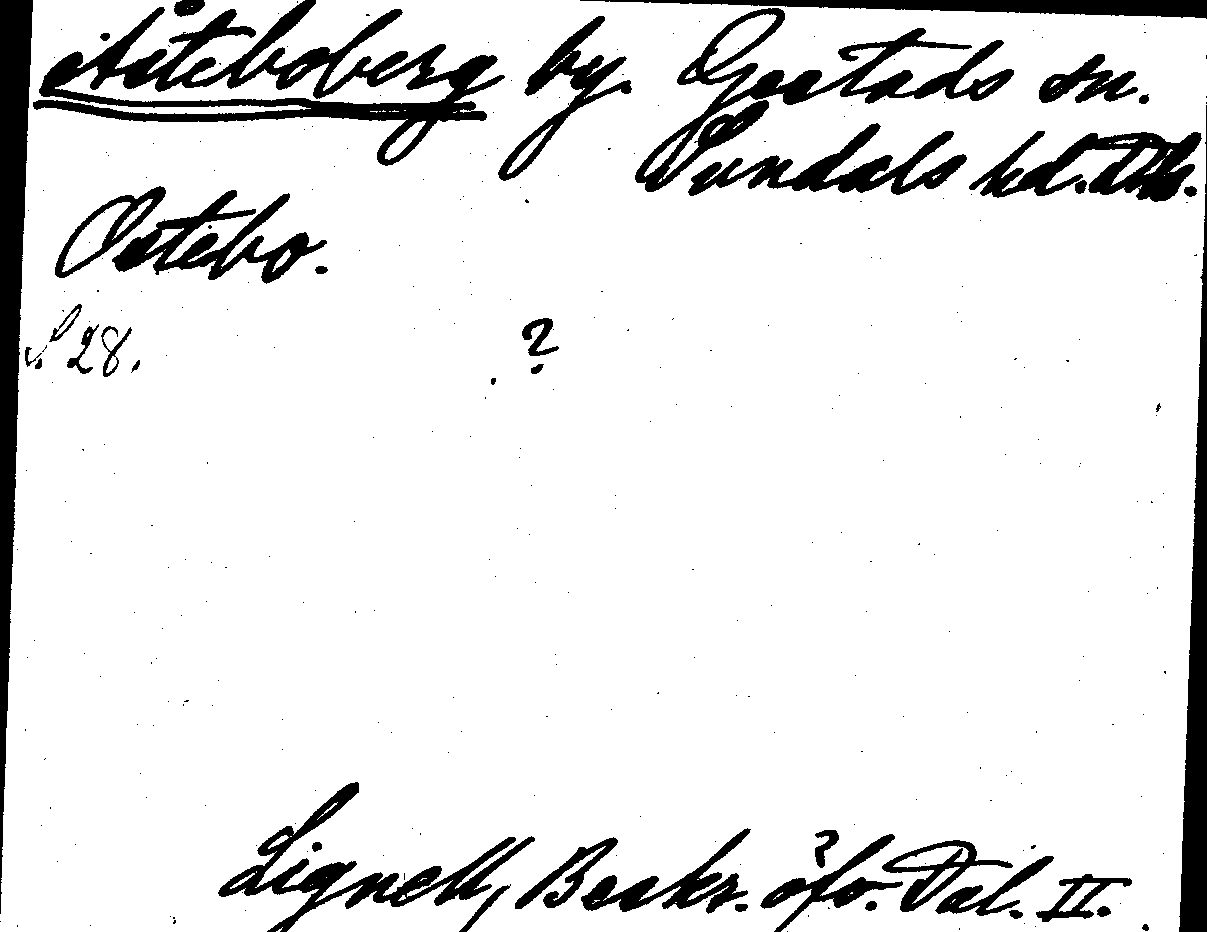 Åsteboberg by. Gestads sn.
Sundals hd. Dls.
Ostebo.
S. 28.
?
Lignell, Beskr. öfv. Dal. II.